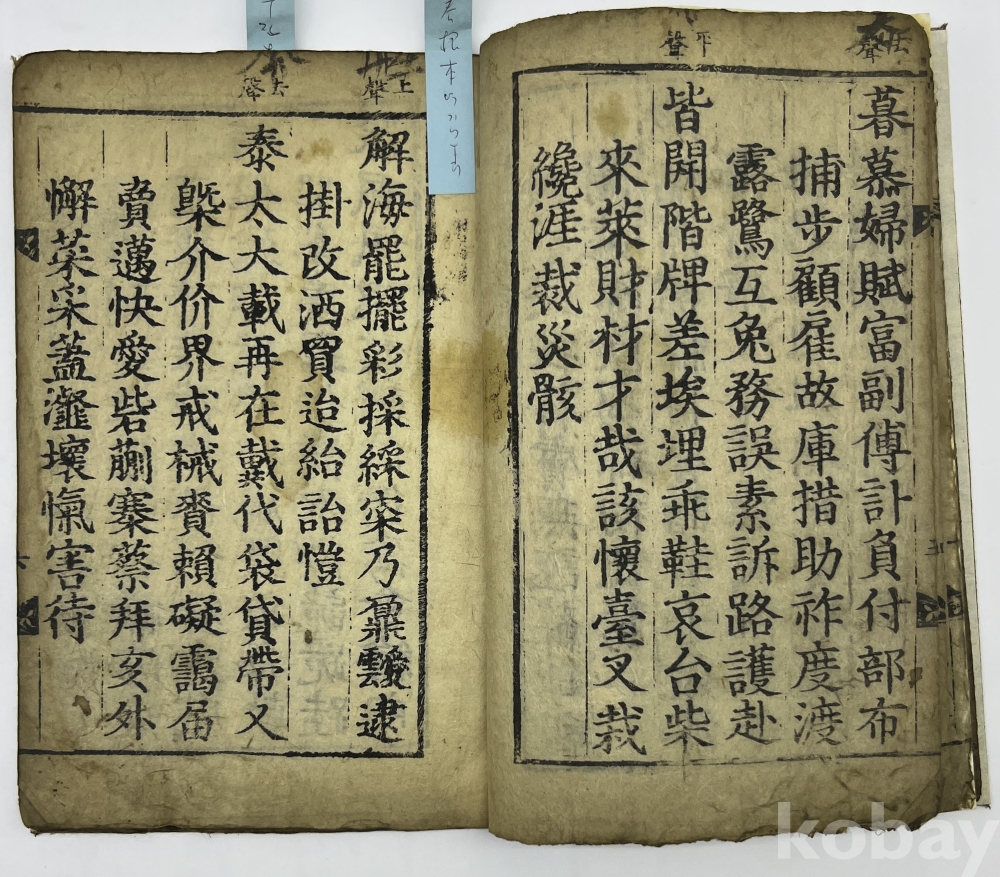 去聲
暮慕婦賦富副傅訃負付部布
捕步顧雇故庫措助祚度渡
露鷺互兔務誤素訴路護赴
平聲
皆開階牌差埃埋乖鞋哀台柴
來萊財材才哉該懷臺叉栽
纔涯裁災骸
上聲
解海罷擺彩採綵寀乃鼐靉逮
掛改洒買迨紿詒愷
去聲
泰太大載再在戴代袋貸帶又
槩介价界戒械賚賴礙靄届
賣邁快愛砦蒯寨蔡拜亥外
懈菜寀蓋瀣壞愾害待
kobay